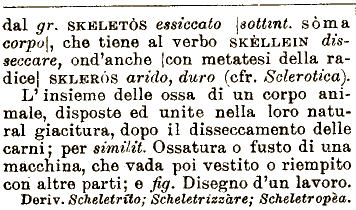 dal gr. SKELETÒS essiccato |sottint. sòma
corpo|, che tiene al verbo SKÈLLEIN dis-
seccare, ond'anche |con metatesi della ra-
dice| SKLERÓS arido, duro (cfr. Sclerotica).
L'insieme delle ossa di un corpo ani-
male, disposte ed unite nella loro natu-
ral giacitura, dopo il disseccamento delle
carni; per similit. Ossatura o fusto di una
macchina, che vada poi vestito o riempito
con altre parti; e fig. Disegno d'un lavoro.
Deriv. Scheletríto; Scheletrizzàre; Scheletropèa.